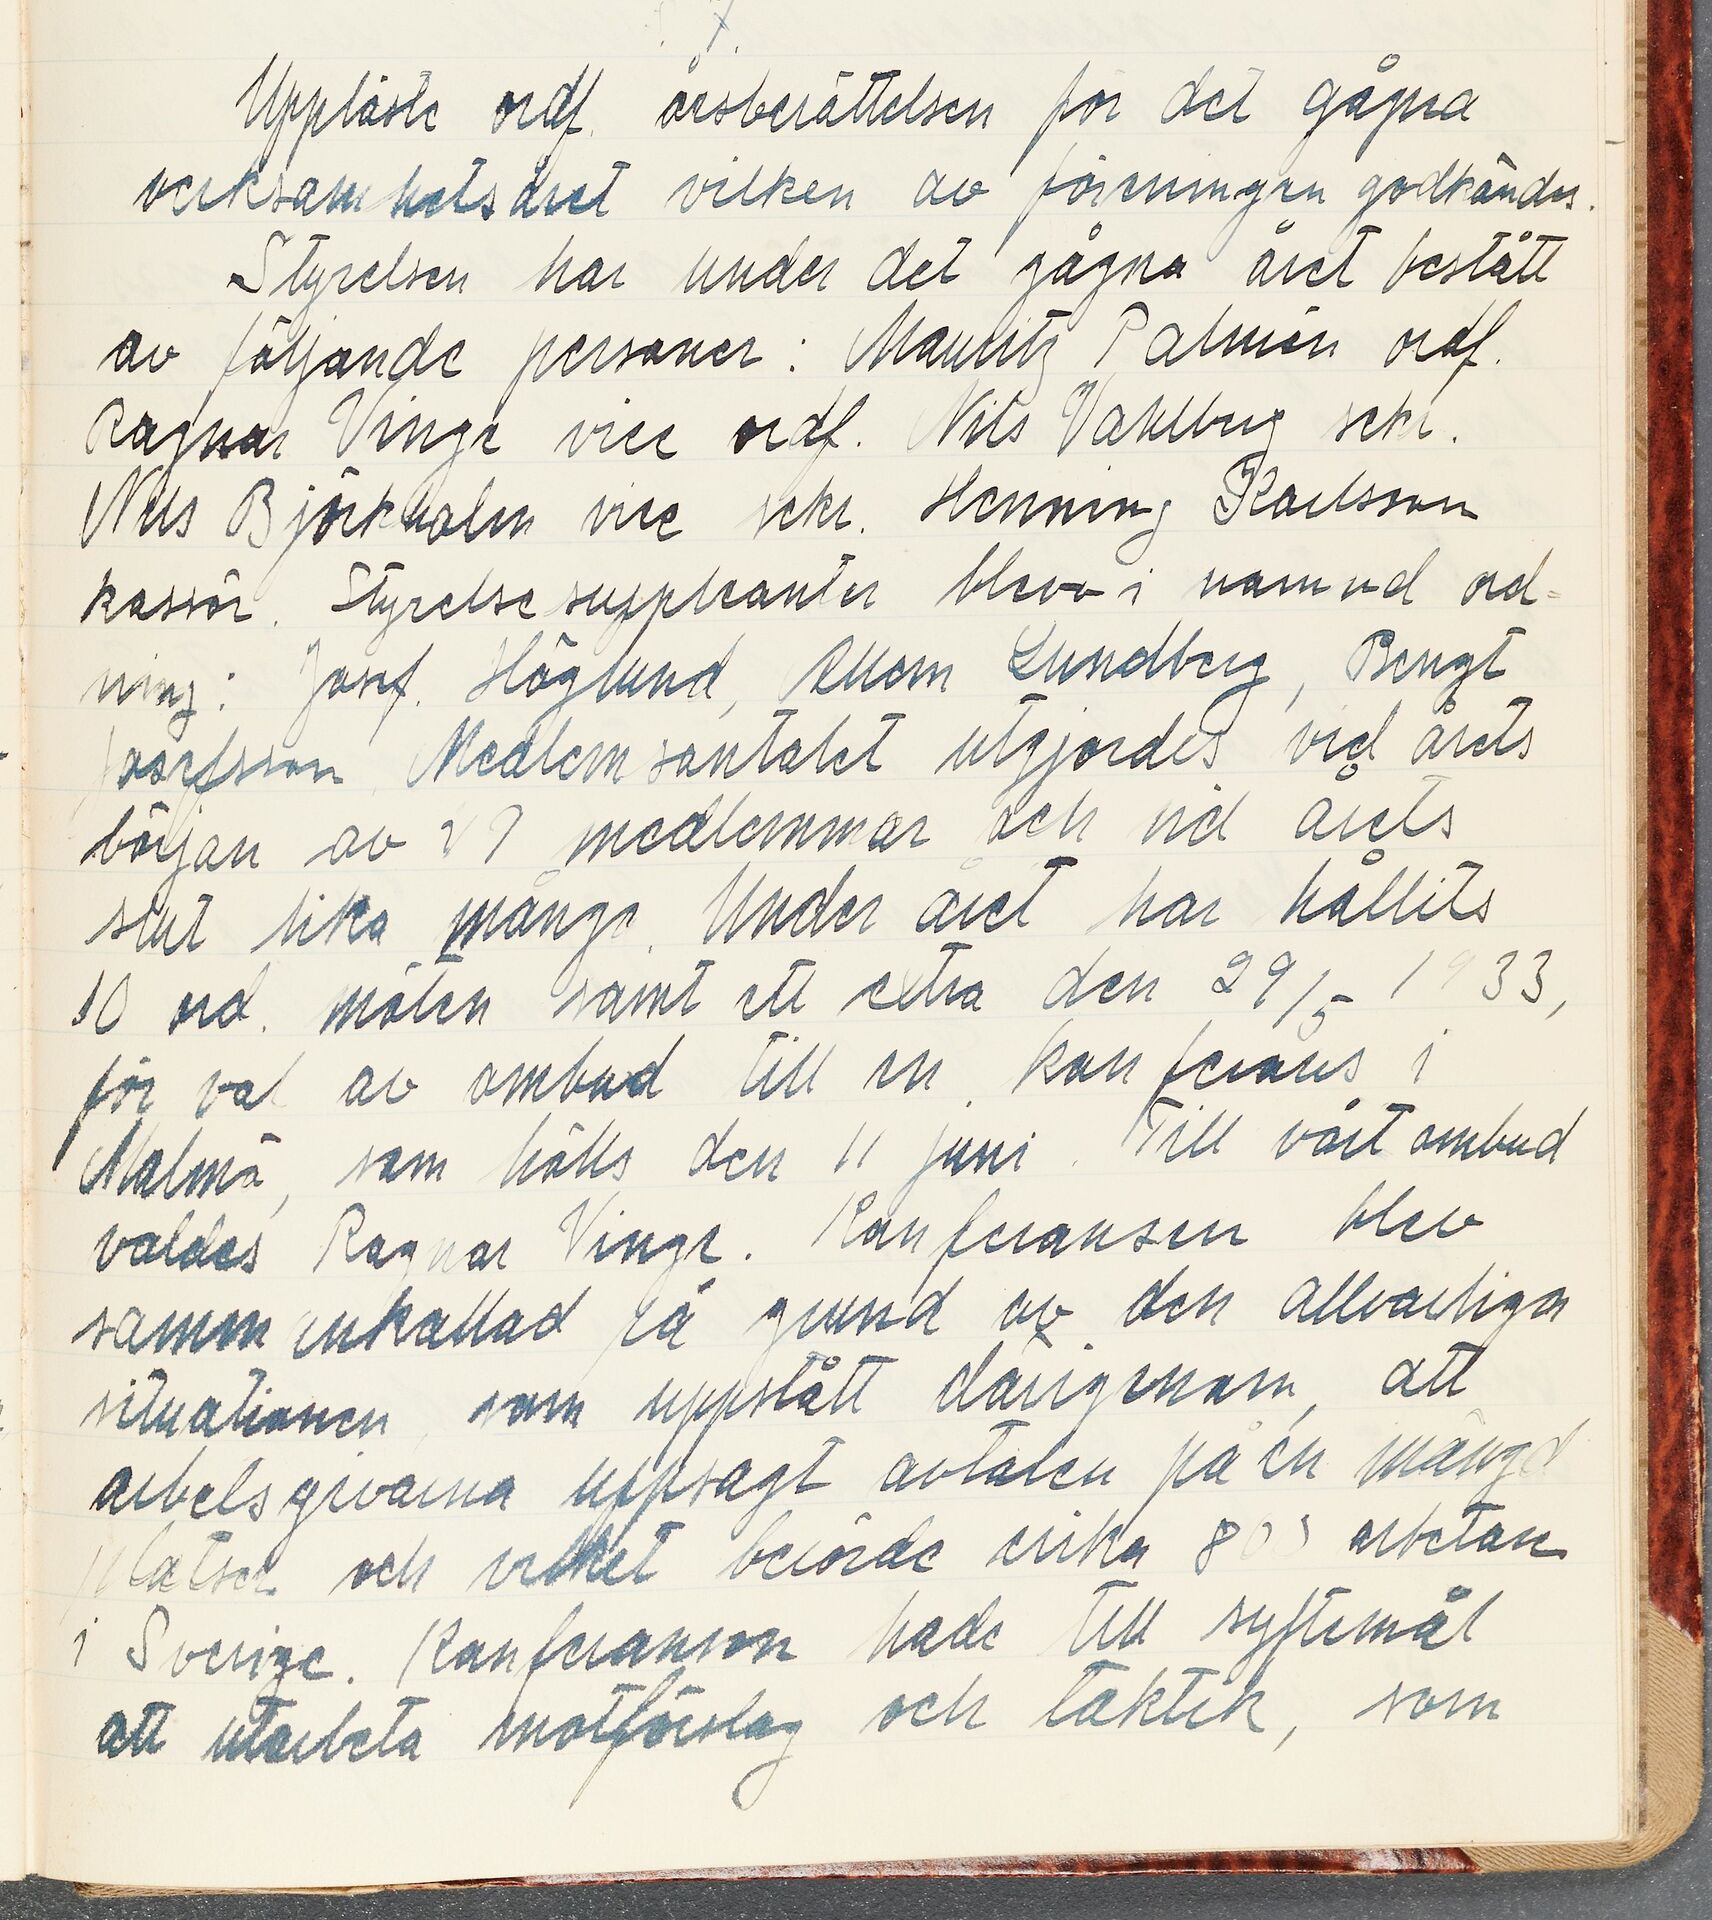 7.
Uppläste ordf. årsberättelsen för det gågna
verksamhetsåret vilken av föreningen godkändes.
Styrelsen har under det gågna året bestått
av följande personer: Mauritz Palmén ordf.
Ragnar Vinge vice ordf. Nils Vahlberg sekr.
Nils Björkholm vice sekr. Henning Karlsson
kassör. Styrelsesuppleanter blevo i namnd ord-
ning: Josef. Höglund, Lundberg, Bengt
Josefsson. Medlemsantalet utgjordes vid årets
början av medlemmar och vid årets
slut lika många. Under året har hållits
10 ord. möten samt ett extra den 29/5 1933,
för val av ombud till en konferans i
Malmö, som hölls den 11 juni. Till vårt ombud
valdes Ragnar Vinge. Konferansen blev
sammenkallad på grund av den allvarliga
situationen, som uppstått därigenom, att
arbetsgivarna uppsagt avtalen på en mängd
platser och vilket berörde cirka arbetare
i Sverige. Konferansen hade till syftemål
att utarbeta motförslag och taktik, som